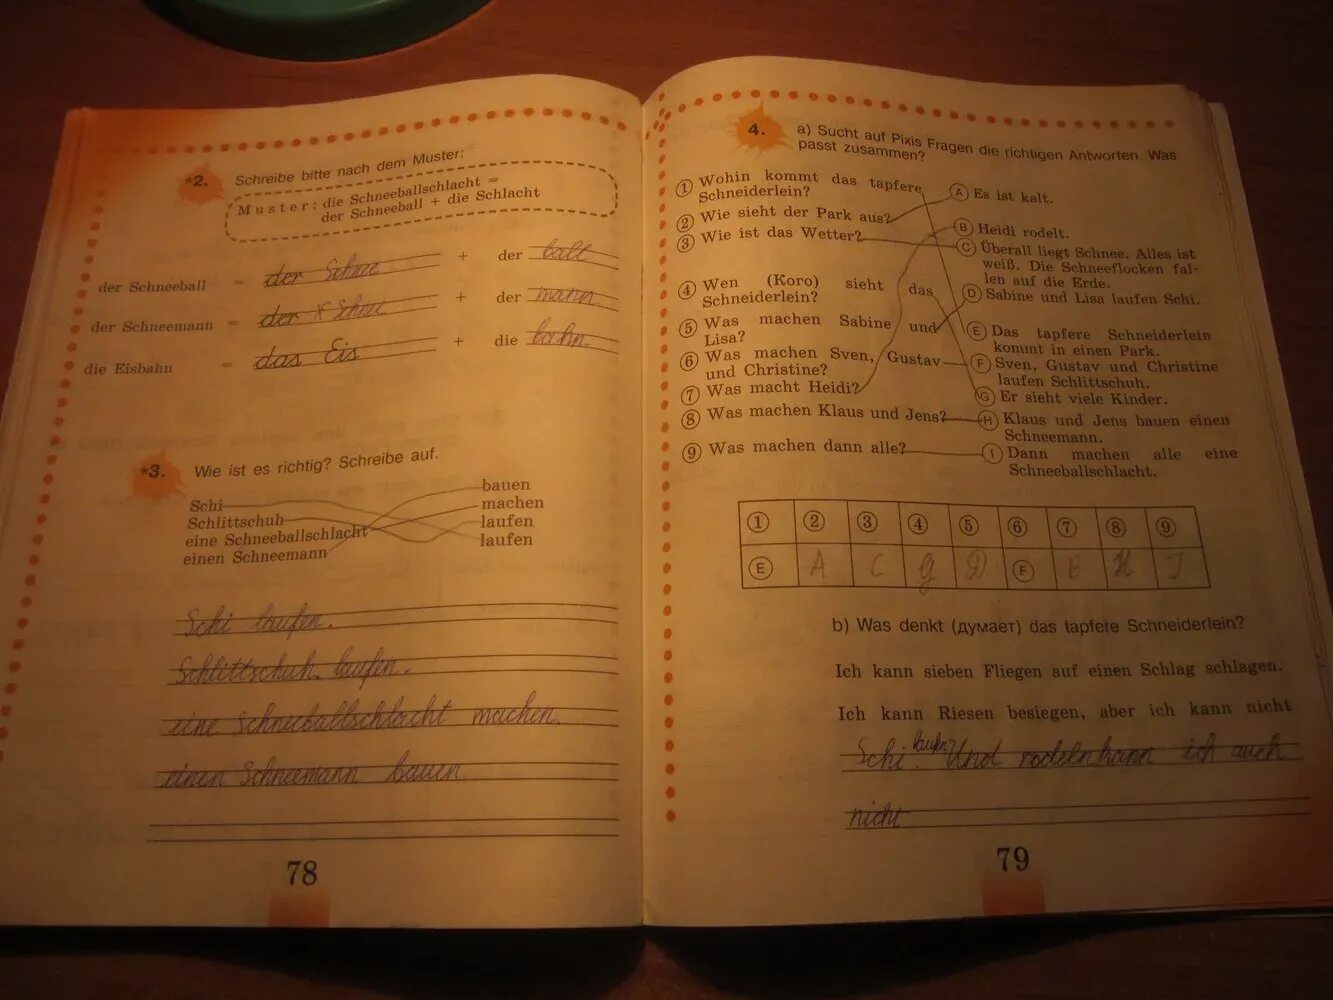 *2. Schreibe bitte nach dem Muster:
Muster: die Schneeballschlacht =
der Schneeball + die Schlacht
der Schneeball = der Schnee + der ball
der Schneemann = der Schnee + der mann
die Eisbahn = das Eis + die bahn.
*3. Wie ist es richtig? Schreibe auf.
Schi bauen
Schlittschuh machen
eine Schneeballschlacht laufen
einen Schneemann laufen
Schi laufen.
Schlittschuh laufen.
eine Schneeballschlacht machen.
einen Schneemann bauen.
78
4. a) Sucht auf Pixis Fragen die richtigen Antworten. Was
passt zusammen?
1 Wohin kommt das tapfere
Schneiderlein?
2 Wie sieht der Park aus?
3 Wie ist das Wetter?
4 Wen (Koro) sieht das
Schneiderlein?
5 Was machen Sabine und
Lisa?
6 Was machen Sven, Gustav
und Christine?
7 Was macht Heidi?
8 Was machen Klaus und Jens?
9 Was machen dann alle?
A Es ist kalt.
B Heidi rodelt.
C Überall liegt Schnee. Alles ist
weiß. Die Schneeflocken fal-
len auf die Erde.
D Sabine und Lisa laufen Schi.
E Das tapfere Schneiderlein
kommt in einen Park.
F Sven, Gustav und Christine
laufen Schlittschuh.
G Er sieht viele Kinder.
H Klaus und Jens bauen einen
Schneemann.
I Dann machen alle eine
Schneeballschlacht.
1 2 3 4 5 6 7 8 9
E A C G D F B H I
b) Was denkt (думает) das tapfere Schneiderlein?
Ich kann sieben Fliegen auf einen Schlag schlagen.
Ich kann Riesen besiegen, aber ich kann nicht
Schi laufen. Und rodeln kann ich auch
nicht.
79